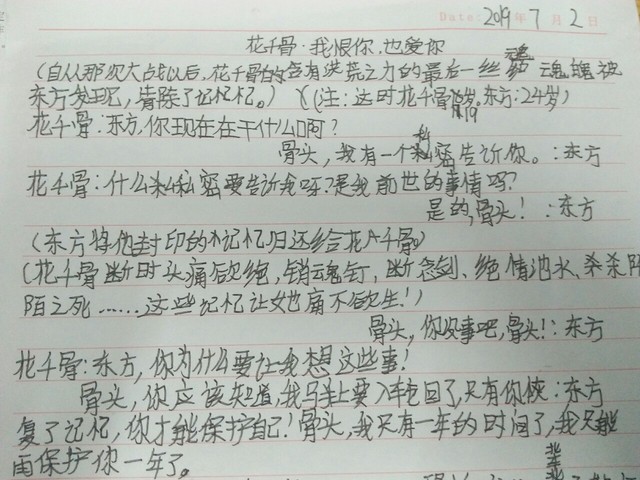 Date: 2019年7月2日
花千骨:我恨你,也爱你
(自从那次大战以后,花千骨的含有洪荒之力的最后一丝魂魄被
东方发现,清除了记忆。)(注:这时花千骨19岁。东方:24岁)
花千骨:东方,你现在在干什么啊?
骨头,我有一个秘密告诉你。:东方
花千骨:什么秘密要告诉我呀?是我前世的事情吗?
是的,骨头!:东方
(东方将伪封印的记忆归还给花千骨。)
(花千骨断时头痛欲绝,销魂钉,断念剑、绝情池水、杀杀陌
陌之死……这些记忆让她痛不欲生!)
骨头,你没事吧,骨头!:东方
花千骨:东方,你为什么要让我想这些事!
骨头,你应该知道,我马上要入轮回了,只有你恢:东方
复了记忆,你才能保护自己!骨头,我只有一年的时间了,我只能
再保护你一年了。